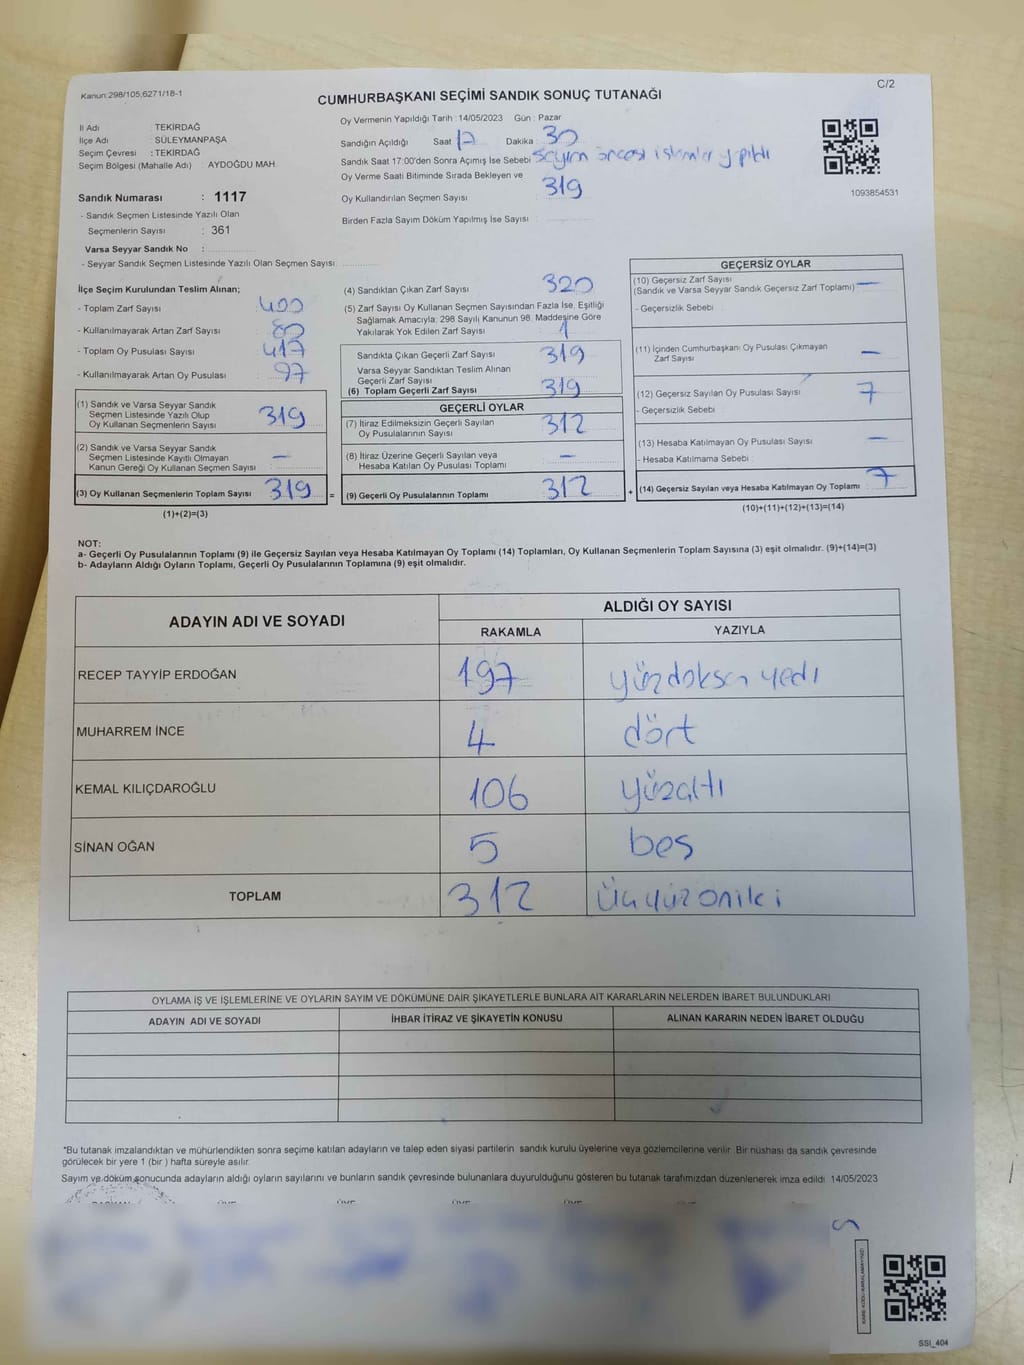 Kanun:298/105,6271/18-1
C/2
CUMHURBAŞKANI SEÇİMİ SANDIK SONUÇ TUTANAĞI
İl Adı TEKİRDAĞ
İlçe Adı : SÜLEYMANPAŞA
Seçim Çevresi : TEKİRDAĞ
Seçim Bölgesi (Mahalle Adı) : AYDOĞDU MAH.
Sandık Numarası : 1117
- Sandık Seçmen Listesinde Yazılı Olan
Seçmenlerin Sayısı : 361
Varsa Seyyar Sandık No :
- Seyyar Sandık Seçmen Listesinde Yazılı Olan Seçmen Sayısı:
Oy Vermenin Yapıldığı Tarih : 14/05/2023 Gün : Pazar
Sandığın Açıldığı Saat 17 Dakika : 30
Sandık Saat 17:00'den Sonra Açımış İse Sebebi sayım öncesi işlemler yapıldı
Oy Verme Saati Bitiminde Sırada Bekleyen ve
Oy Kullandırılan Seçmen Sayısı : 319
Birden Fazla Sayım Döküm Yapılmış İse Sayısı :
1093854531
İlçe Seçim Kurulundan Teslim Alınan;
- Toplam Zarf Sayısı : 400
- Kullanılmayarak Artan Zarf Sayısı : 80
- Toplam Oy Pusulası Sayısı : 417
- Kullanılmayarak Artan Oy Pusulası : 97
(1) Sandık ve Varsa Seyyar Sandık
Seçmen Listesinde Yazılı Olup
Oy Kullanan Seçmenlerin Sayısı : 319
(2) Sandık ve Varsa Seyyar Sandık
Seçmen Listesinde Kayıtlı Olmayan
Kanun Gereği Oy Kullanan Seçmen Sayısı : —
(3) Oy Kullanan Seçmenlerin Toplam Sayısı : 319 =
(1)+(2)=(3)
(4) Sandıktan Çıkan Zarf Sayısı : 320
(5) Zarf Sayısı Oy Kullanan Seçmen Sayısından Fazla İse, Eşitliği
Sağlamak Amacıyla; 298 Sayılı Kanunun 98. Maddesine Göre
Yakılarak Yok Edilen Zarf Sayısı : 1
Sandıkta Çıkan Geçerli Zarf Sayısı : 319
Varsa Seyyar Sandıktan Teslim Alınan
Geçerli Zarf Sayısı
(6) Toplam Geçerli Zarf Sayısı : 319
GEÇERLİ OYLAR
(7) İtiraz Edilmeksizin Geçerli Sayılan
Oy Pusulalarının Sayısı : 312
(8) İtiraz Üzerine Geçerli Sayılan veya
Hesaba Katılan Oy Pusulası Toplamı : —
(9) Geçerli Oy Pusulalarının Toplamı : 312 +
GEÇERSİZ OYLAR
(10) Geçersiz Zarf Sayısı
(Sandık ve Varsa Seyyar Sandık Geçersiz Zarf Toplamı) : —
- Geçersizlik Sebebi :
(11) İçinden Cumhurbaşkanı Oy Pusulası Çıkmayan
Zarf Sayısı : —
(12) Geçersiz Sayılan Oy Pusulası Sayısı : 7
- Geçersizlik Sebebi :
(13) Hesaba Katılmayan Oy Pusulası Sayısı : —
- Hesaba Katılmama Sebebi :
(14) Geçersiz Sayılan veya Hesaba Katılmayan Oy Toplamı : 7
(10)+(11)+(12)+(13)=(14)
NOT:
a- Geçerli Oy Pusulalarının Toplamı (9) ile Geçersiz Sayılan veya Hesaba Katılmayan Oy Toplamı (14) Toplamları, Oy Kullanan Seçmenlerin Toplam Sayısına (3) eşit olmalıdır. (9)+(14)=(3)
b- Adayların Aldığı Oyların Toplamı, Geçerli Oy Pusulalarının Toplamına (9) eşit olmalıdır.
ADAYIN ADI VE SOYADI ALDIĞI OY SAYISI
RAKAMLA YAZIYLA
RECEP TAYYİP ERDOĞAN 197 yüzdoksan yedi
MUHARREM İNCE 4 dört
KEMAL KILIÇDAROĞLU 106 yüzaltı
SİNAN OĞAN 5 beş
TOPLAM 312 üçyüzoniki
OYLAMA İŞ VE İŞLEMLERİNE VE OYLARIN SAYIM VE DÖKÜMÜNE DAİR ŞİKAYETLERLE BUNLARA AİT KARARLARIN NELERDEN İBARET BULUNDUKLARI
ADAYIN ADI VE SOYADI İHBAR İTİRAZ VE ŞİKAYETİN KONUSU ALINAN KARARIN NEDEN İBARET OLDUĞU
*Bu tutanak imzalandıktan ve mühürlendikten sonra seçime katılan adayların ve talep eden siyasi partilerin sandık kurulu üyelerine veya gözlemcilerine verilir. Bir nüshası da sandık çevresinde
görülecek bir yere 1 (bir ) hafta süreyle asılır.
Sayım ve döküm sonucunda adayların aldığı oyların sayılarını ve bunların sandık çevresinde bulunanlara duyurulduğunu gösteren bu tutanak tarafımızdan düzenlenerek imza edildi. 14/05/2023
SSI_404